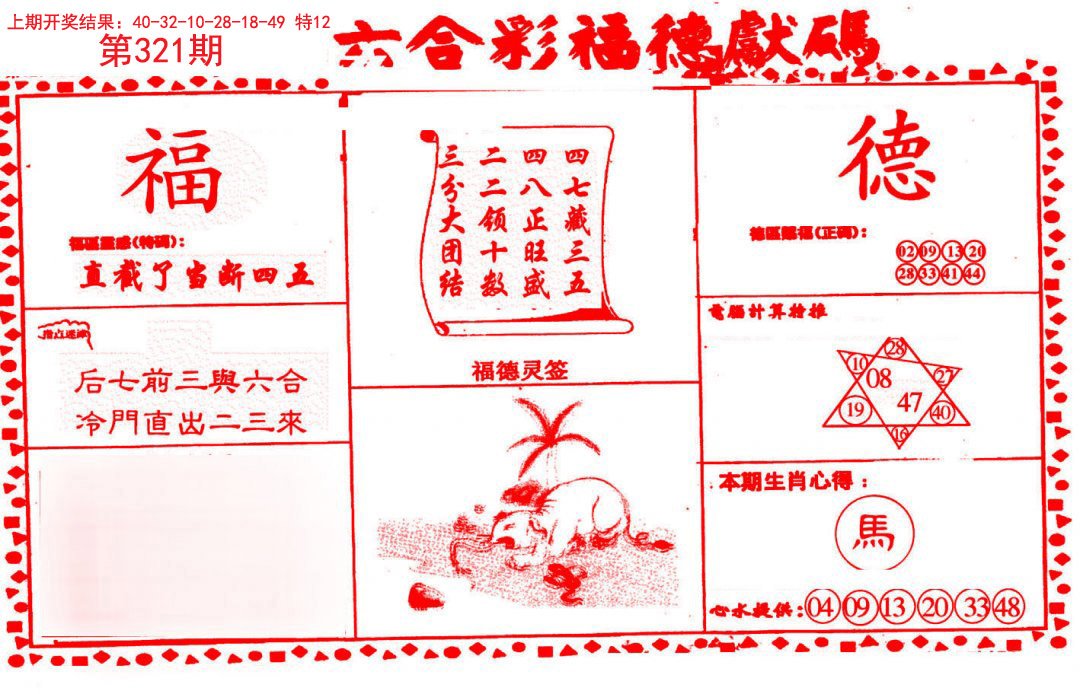 上期开奖结果: 40-32-10-28-18-49 特12
第321期
六合彩福德獻碼
福
福區靈感(特碼):
直截了当断四五
指点迷津
后七前三與六合
冷門直出二三來
四七藏三五
四八正旺盛
二二领十数
三分大团结
福德灵签
德
德區賜福(正碼):
02 09 13 20
28 33 41 44
電腦計算柃推
28
10
27
08
47
19
40
16
本期生肖心得:
馬
心水提供: 04 09 13 20 33 48